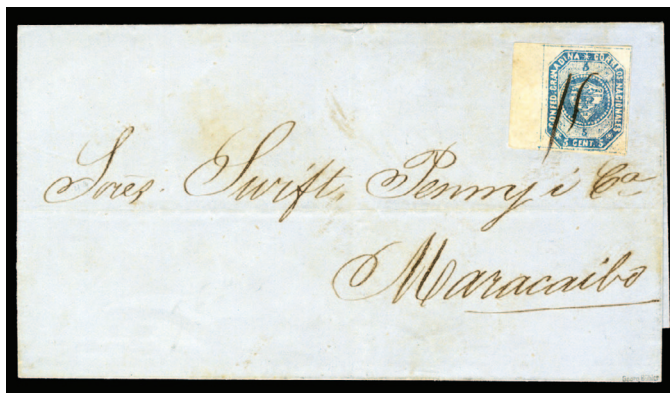 CONFED. GRANADINA * CORREOS NACIONALES
5
5
5 CENT. 5
Sores. Swift, Penny i Ca
Maracaibo